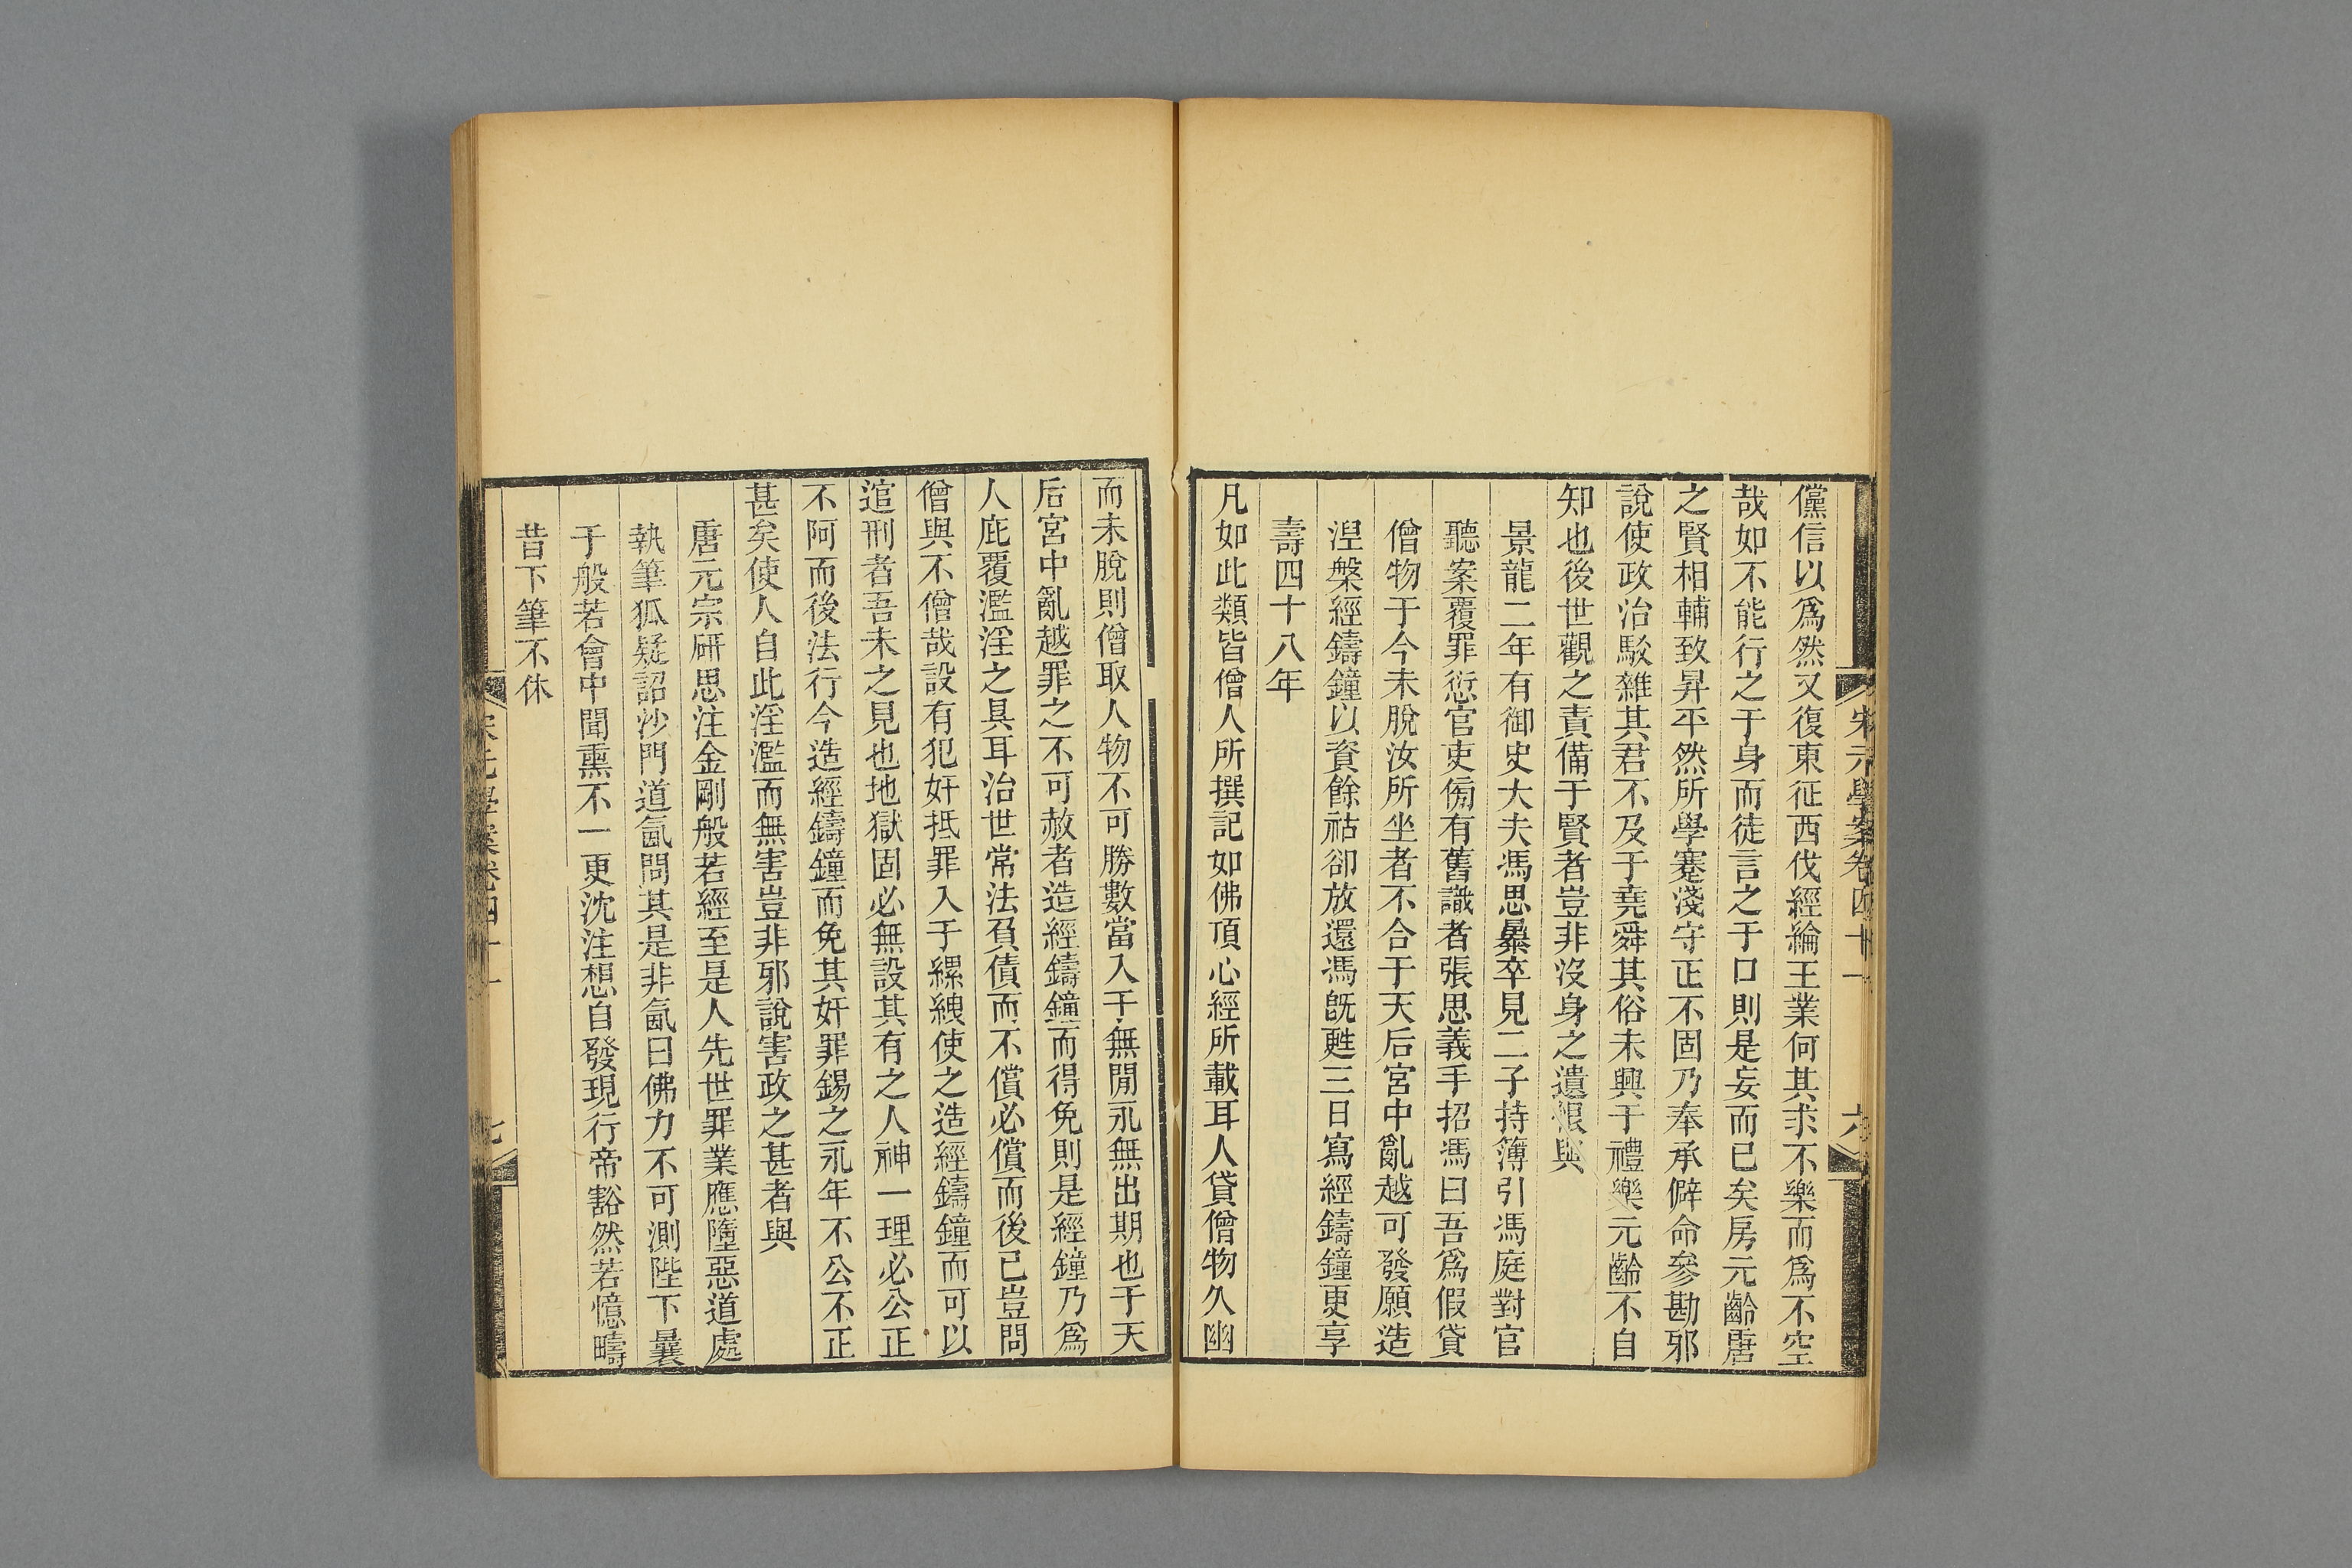 宋元學案卷四十一
六
儻信以爲然又復東征西伐經綸王業何其求不樂而爲不空
哉如不能行之于身而徒言之于口則是妄而已矣房元齡唐
之賢相輔致昇平然所學蹇淺守正不固乃奉承僻命參勘邪
說使政治駁雜其君不及于堯舜其俗未興于禮樂元齡不自
知也後世觀之責備于賢者豈非沒身之遺恨與
景龍二年有御史大夫馮思㬥卒見二子持簿引馮庭對官
聽案覆罪愆官吏傍有舊識者張思義手招馮曰吾爲假貸
僧物于今未脫汝所坐者不合于天后宮中亂越可發願造
涅槃經鑄鐘以資餘祜卻放還馮旣甦三日寫經鑄鐘更享
壽四十八年
凡如此類皆僧人所撰記如佛頂心經所載耳人貸僧物久幽
而未脫則僧取人物不可勝數當入于無閒永無出期也于天
后宮中亂越罪之不可赦者造經鑄鐘而得免則是經鐘乃爲
人庇覆濫淫之具耳治世常法負債而不償必償而後已豈問
僧與不僧哉設有犯奸抵罪入于縲絏使之造經鑄鐘而可以
逭刑者吾未之見也地獄固必無設其有之人神一理必公正
不阿而後法行今造經鑄鐘而免其奸罪錫之永年不公不正
甚矣使人自此淫濫而無害豈非邪說害政之甚者與
唐元宗研思注金剛般若經至是人先世罪業應墮惡道處
執筆狐疑詔沙門道氤問其是非氤曰佛力不可測陛下曩
于般若會中聞熏不一更沈注想自發現行帝豁然若憶疇
昔下筆不休
宋元學案卷四十一
七